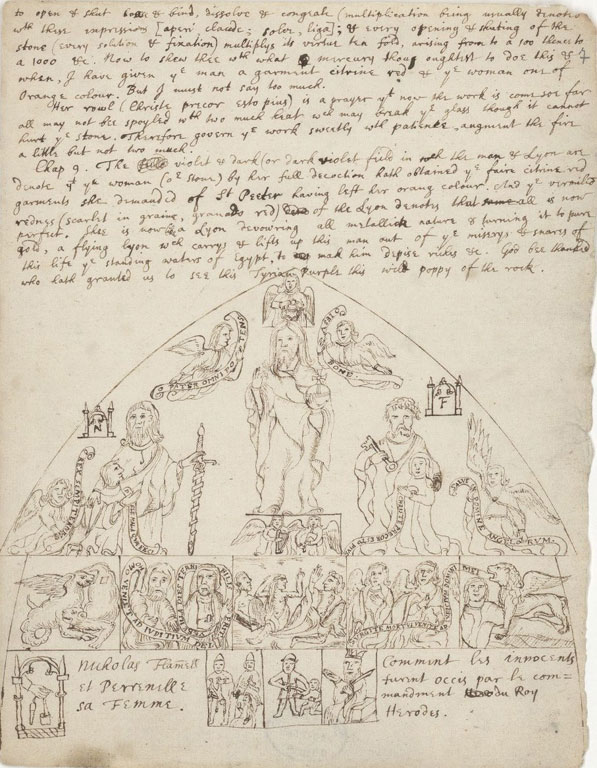 to open & shut loose & bind, dissolve & congeale (multiplication being usually denoted
wth these expressions [aperi claude; solve, liga]; & every opening & shuting of the
stone (every solution & fixation) multiplys its virtue ten fold, arising from to a 100 thence to
a 1000 &c. Now to shew thee wth what mercury thou oughtest to doe this & 
when, I have given ye man a garment citrine red & ye woman one of
Orange colour. But I must not say too much.
Her rowl (Christe precor esto pius) is a prayer yt now the work is come soe far
all may not bee spoyled wth two much heat wch may break ye glass though it cannot
hurt ye stone. Therefore govern ye work sweetly wth patience, augment the fire
a little but not two much.
Chap 9. The violet & dark (or dark violet field in wch the man & Lyon are
denote yt ye woman (ye stone) by her full decoction hath obtained ye faire citrine red
garments she demanded of St Peeter having left her orang colour. And ye vermilion
redness (scarlet in graine, granads red) of the Lyon denotes that all is now
perfect. Shee is now a Lyon devouring all metallick nature & turning it to pure
gold, a flying lyon wch carrys & lifts up this man out of ye miserys & snares of
this life ye standing waters of Egypt, to mak him depise riches &c. God bee thanked
who hath granted us to see this Tyrian purple this wild poppy of the rock.
O PATER OMNIPOTENS
O IESU BONE
N
F
REX SEMPITERNE
DELE MALA QUÆ FECI
CHRISTE PRECOR ESTO PIUS
SALVE DOMINE ANGELORUM
HOMO VENIET AD IUDICIUM DEI
VERE ILLA DIES TERRIBILIS ERIT
SURGITE MORTUI VENITE AD IUDICIUM DOMINI MEI
Nicholas Flamell
et Perrenelle
sa Femme.
Comment les innocents
furent occis par le com=
mandment du Roy
Herodes.